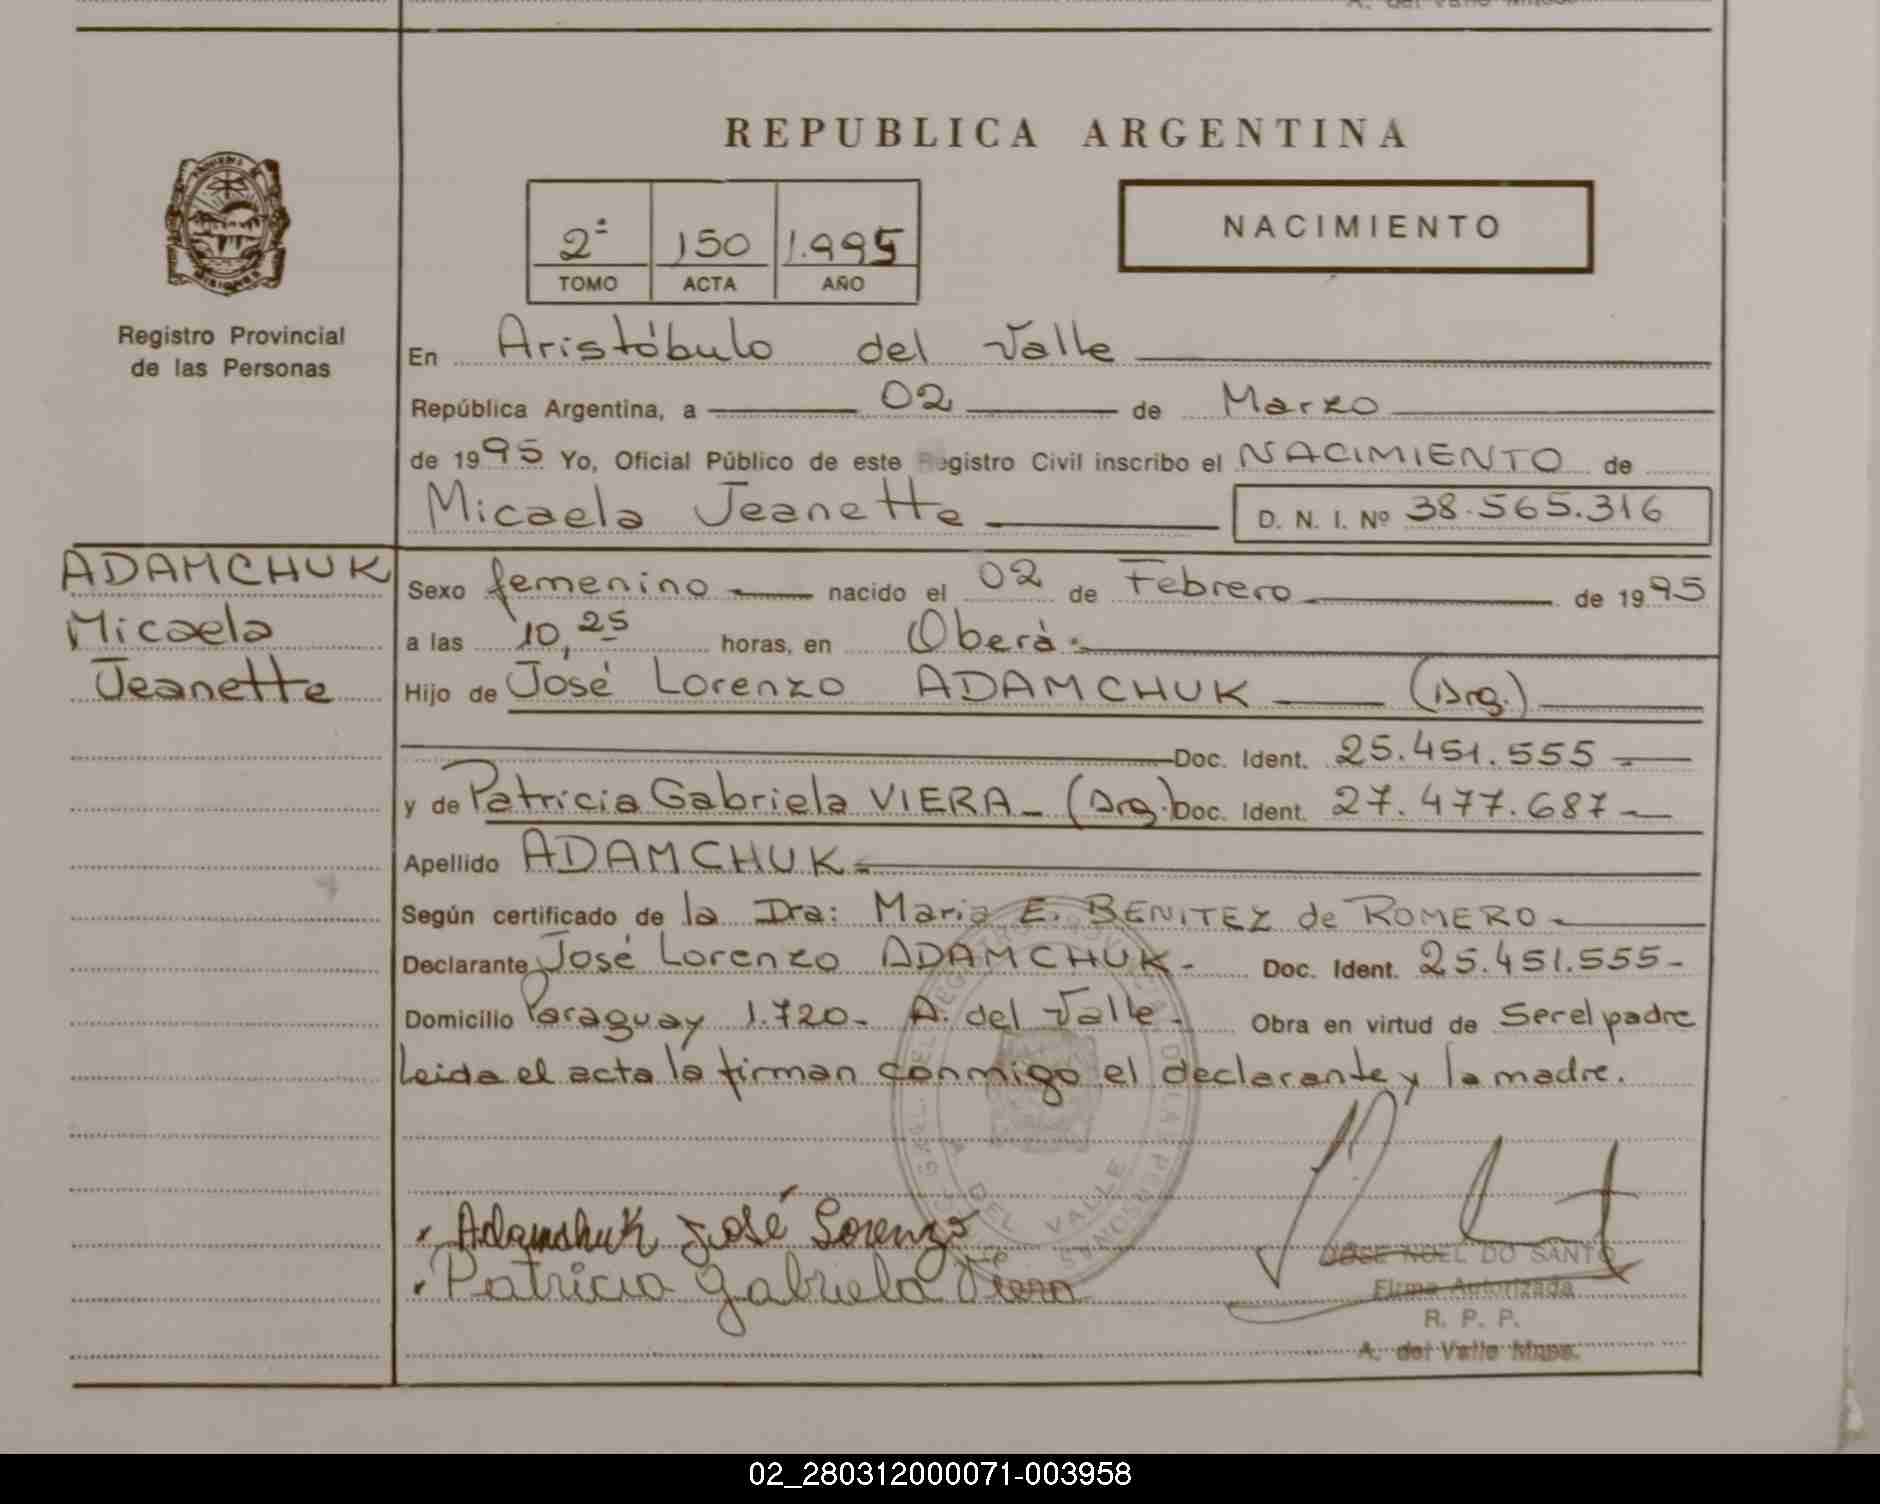 REPUBLICA ARGENTINA
2ª 150 1.995
TOMO ACTA AÑO
NACIMIENTO
Registro Provincial
de las Personas
En Aristóbulo del Valle
República Argentina, a 02 de Marzo
de 1995 Yo, Oficial Público de este Registro Civil inscribo el NACIMIENTO de
Micaela Jeanette D. N. I. Nº 38.565.316
ADAMCHUK
Micaela
Jeanette
Sexo femenino nacido el 02 de Febrero de 1995
a las 10,25 horas, en Oberá.
Hijo de José Lorenzo ADAMCHUK (Arg.)
Doc. Ident. 25.451.555
y de Patricia Gabriela VIERA (Arg.) Doc. Ident. 27.477.687
Apellido ADAMCHUK
Según certificado de la Dra: Maria E. BENITEZ de ROMERO
Declarante José Lorenzo ADAMCHUK- Doc. Ident. 25.451.555-
Domicilio Paraguay 1.720- A. del Valle- Obra en virtud de Ser el padre
Leida el acta la firman conmigo el declarante y la madre.
Adamchuk José Lorenzo
Patricia Gabriela Viera
JOSE NOEL DO SANTO
Firma Autorizada
R. P. P.
A. del Valle Mnes.
DEL VALLE
02_280312000071-003958